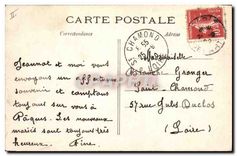 II
CARTE POSTALE
Correspondance
Adresse
CHAMOND
Jeannot et moi vous
envoyons un affectueux
souvenir et comptons
toujours sur vous à
Pâques. Les nouveaux
mariés sont toujours très
heureux. Fine.
Mademoiselle
Blanche Granger
Saint-Chamond
57 rue Gules Duclos
(Loire)